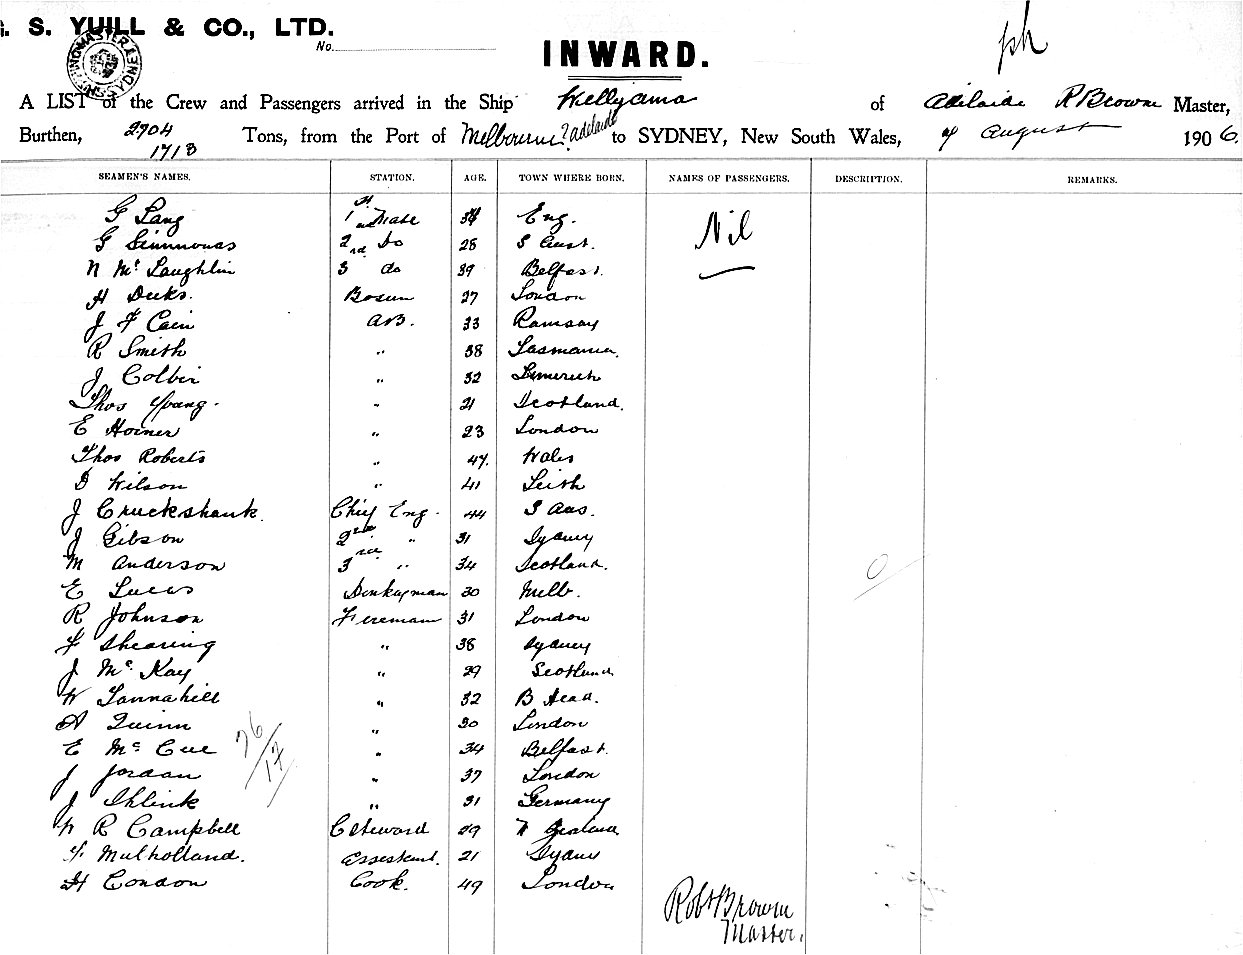 . S. YUILL & CO., LTD.
No.
INWARD.
A LIST of the Crew and Passengers arrived in the Ship Willyama of Adelaide R Browne Master,
Burthen, 2704 Tons, from the Port of Melbourne & Adelaide to SYDNEY, New South Wales, of August 1906.
1713
SEAMEN'S NAMES. STATION. AGE. TOWN WHERE BORN. NAMES OF PASSENGERS. DESCRIPTION. REMARKS.
G Lang 1st Mate 34 Eng. Nil
G Simmonds 2nd Do 28 S Aust.
N McLaughlin 3rd do 39 Belfast.
H Deeks. Bosun 27 London
J F Cain AB. 33 Ramsay
R Smith " 38 Tasmania.
J Colbir " 32 Limerick
Thos Young. " 21 Scotland.
E Horner " 23 London
Thos Roberts " 47. Wales
D Wilson " 41 Leith
J Cruckshank. Chief Eng. 44 S Aus.
J Gibson 2nd " 31 Sydney
M Anderson 3rd " 34 Scotland.
E Lucas Donkeyman 30 Melb.
R Johnson Fireman 31 London
F Shearing " 38 Sydney
J McKay " 29 Scotland
W Tannahill " 32 B Head.
A Quinn " 30 London
E McCue " 34 Belfast.
J Jordan " 37 London
J Ihlink " 31 Germany
W R Campbell C Steward 29 N Zealand
F. Mulholland. Assistant. 21 Sydney
H Condon Cook. 49 London
76/17
Robt Browne
Master.